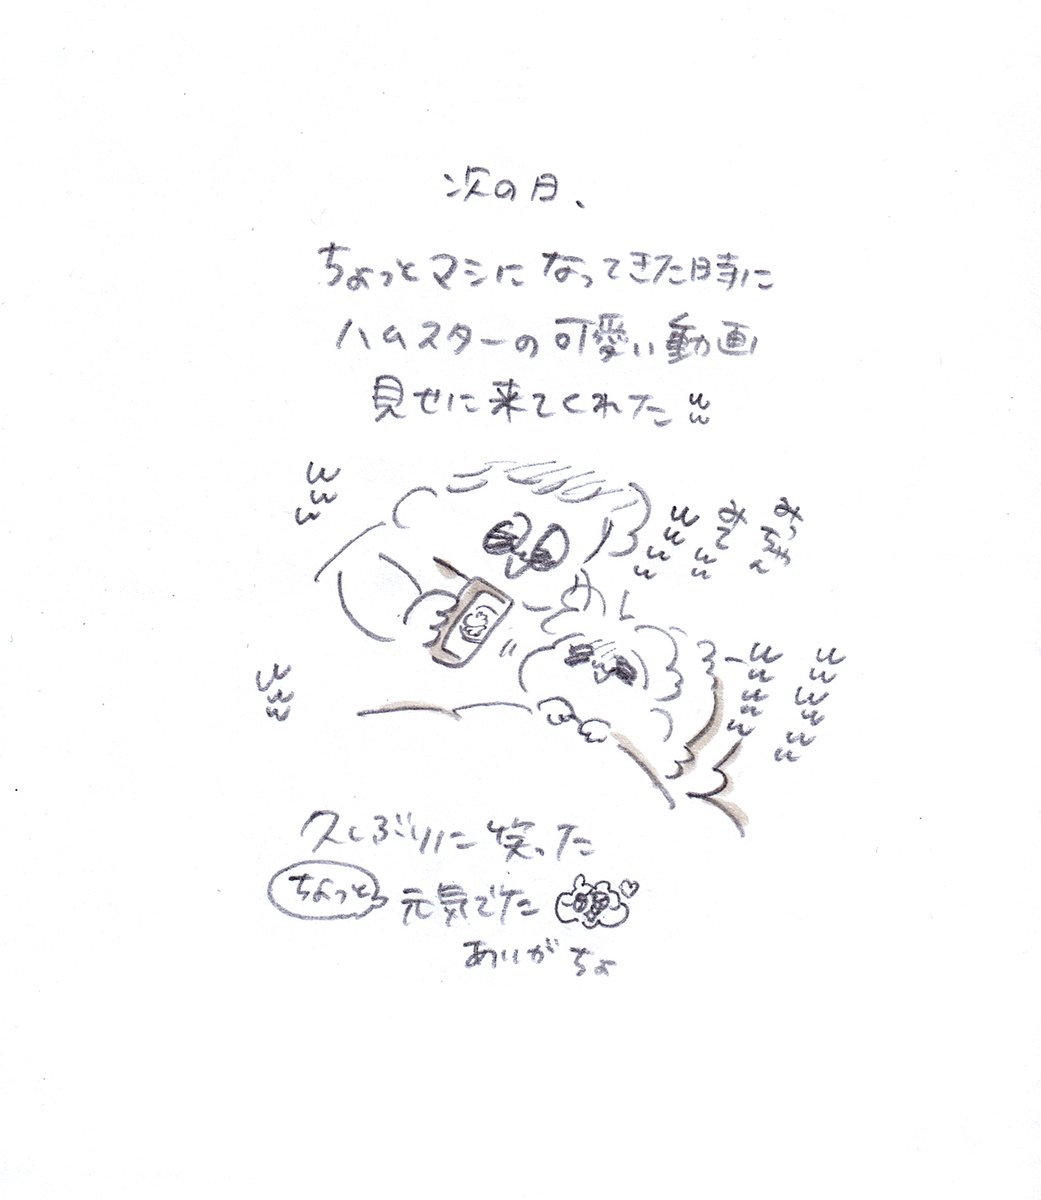 次の日、
ちょっとマシになってきた時に
ハムスターの可愛い動画
見せに来てくれた ww
www
みっちゃん
みてww
wwww
www
wwwww
wwwwww
久しぶりに笑った
ちょっと元気でた
ありがちょ